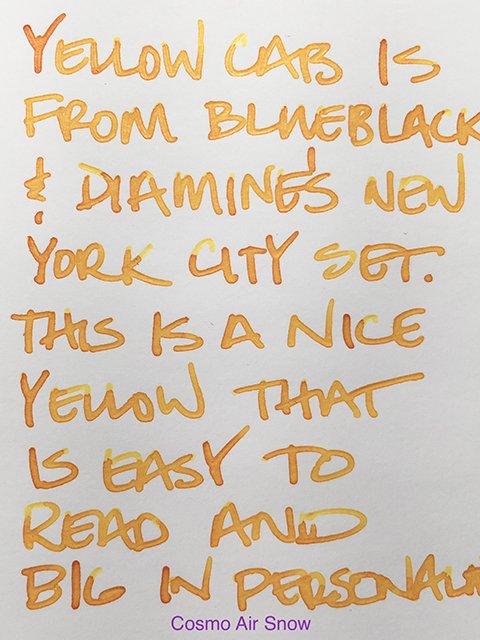 YELLOW CAB IS
FROM BLUEBLACK
& DIAMINE'S NEW
YORK CITY SET.
THIS IS A NICE
YELLOW THAT
IS EASY TO
READ AND
BIG IN PERSONALI
Cosmo Air Snow